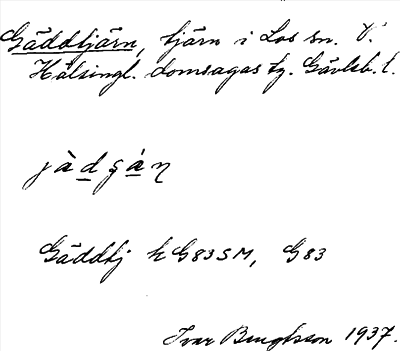 Gäddtjärn, tjärn i Los sn. V.
Hälsingl. domsagas tg. Gävleb. l.
jàdgàn
Gäddtj k G83SM, G83
Ivar Bengtsson 1937.